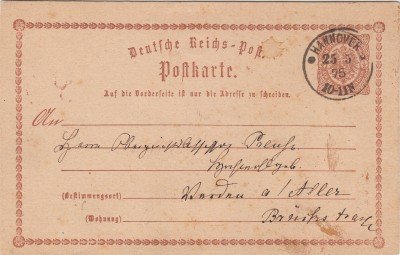 Deutsche Reichs-Post.
Postkarte.
Auf die Vorderseite ist nur die Adresse zu schreiben.
HANNOVER
25 5
75
10-11V
An
Herrn
(Bestimmungsort) Verden a/Aller
(Wohnung) Brückstraße